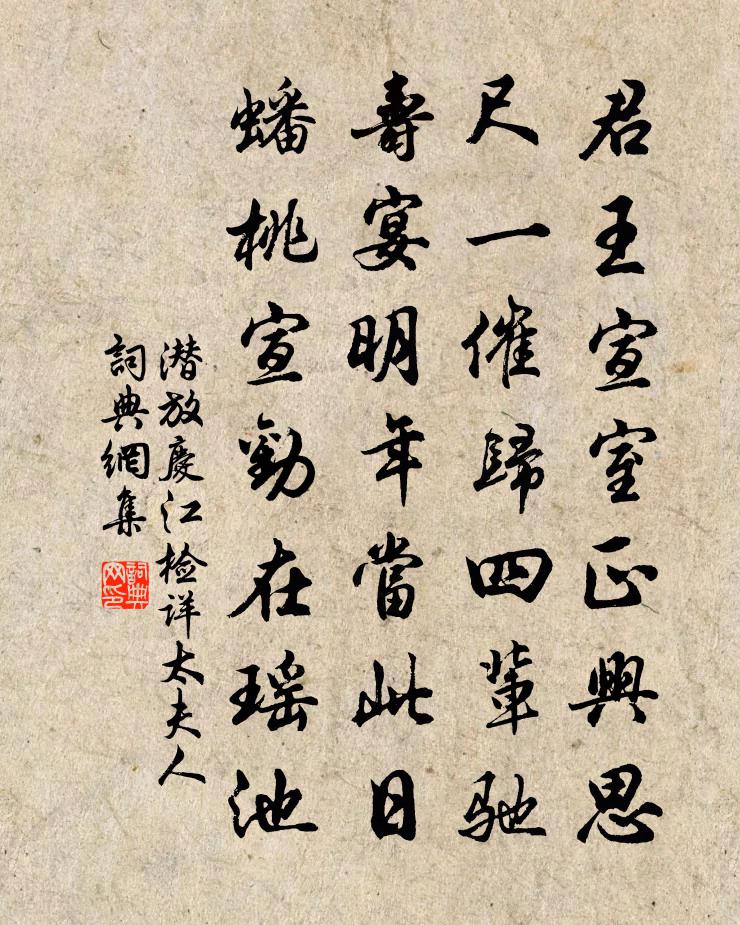 君王宣室正興思
尺一催歸四輩馳
壽宴明年當此日
蟠桃宣勸在瑶池
潜放慶江检详太夫人
詞典網集
詞典网印